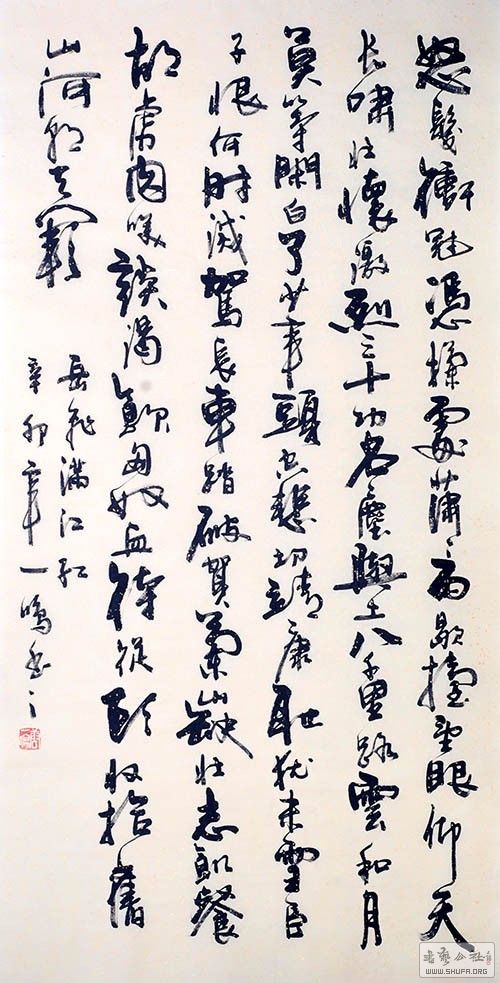 怒髮衝冠憑欄處瀟〻雨歇擡望眼仰天
長嘯壯懷激烈三十功名塵與土八千里路雲和月
莫等閑白了少年頭空悲切靖康耻猶未雪臣
子恨何時滅駕長車踏破賀蘭山缺壯志飢餐
胡虜肉笑談渴飲匈奴血待從頭收拾舊
山河朝天闕
岳飛滿江紅
辛卯年一鳴書
WWW.SHUFA.ORG